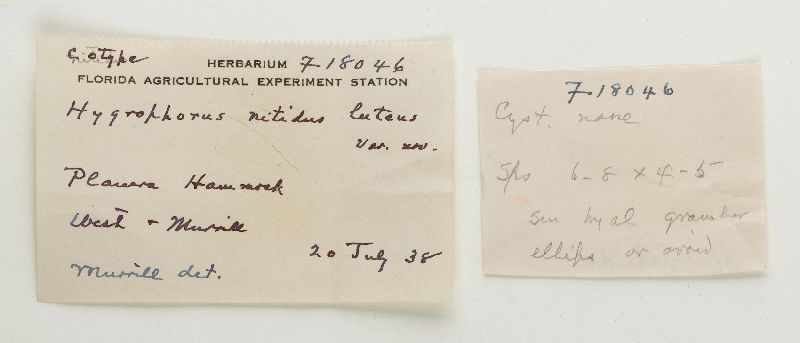 Cotype
HERBARIUM F18046
FLORIDA AGRICULTURAL EXPERIMENT STATION
Hygrophorus nitidus luteus
var. nov.
Planera Hammock
West + Murrill
20 July 38
Murrill det.
F18046
Cyst. none
Sps 6-8 x 4-5
sm hyal granular
ellips or ovoid